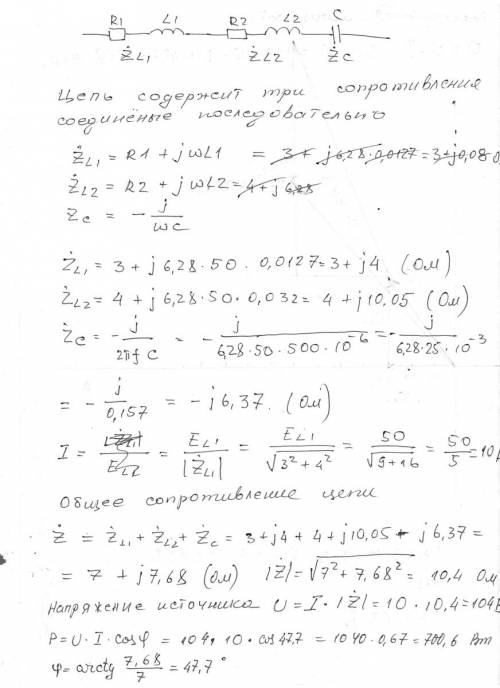 R1 L1 R2 L2 C
ŻL1 ŻL2 Żc
Цепь содержит три сопротивления
соединёные последовательно
ŻL1 = R1 + jωL1 = 3 + j6,28·0,0127 = 3+j0,08
ŻL2 = R2 + jωL2 = 4 + j6,28
Zc = - j/ωc
ŻL1 = 3 + j 6,28·50·0,0127 = 3 + j4 (Ом)
ŻL2 = 4 + j 6,28·50·0,032 = 4 + j10,05 (Ом)
Żc = - j/2πfC - - j/6,28·50·500·10⁻⁶ = - j/6,28·25·10⁻³
= - j/0,157 = - j6,37. (Ом)
I = EL1/|ŻL1| = EL1/√3²+4² = 50/√9+16 = 50/5 = 10
Общее сопротивление цепи
Ż = ŻL1 + ŻL2 + Żc = 3+j4 + 4 + j10,05 - j6,37 =
= 7 + j7,68 (Ом) |Ż| = √7² + 7,68² = 10,4 Ом
Напряжение источника U = I·|Ż| = 10·10,4 = 104В
P = U·I·cosφ = 104·10·cos47.7 = 1040·0,67 = 700,6 Вт
φ = arctg 7,68/7 = 47,7°